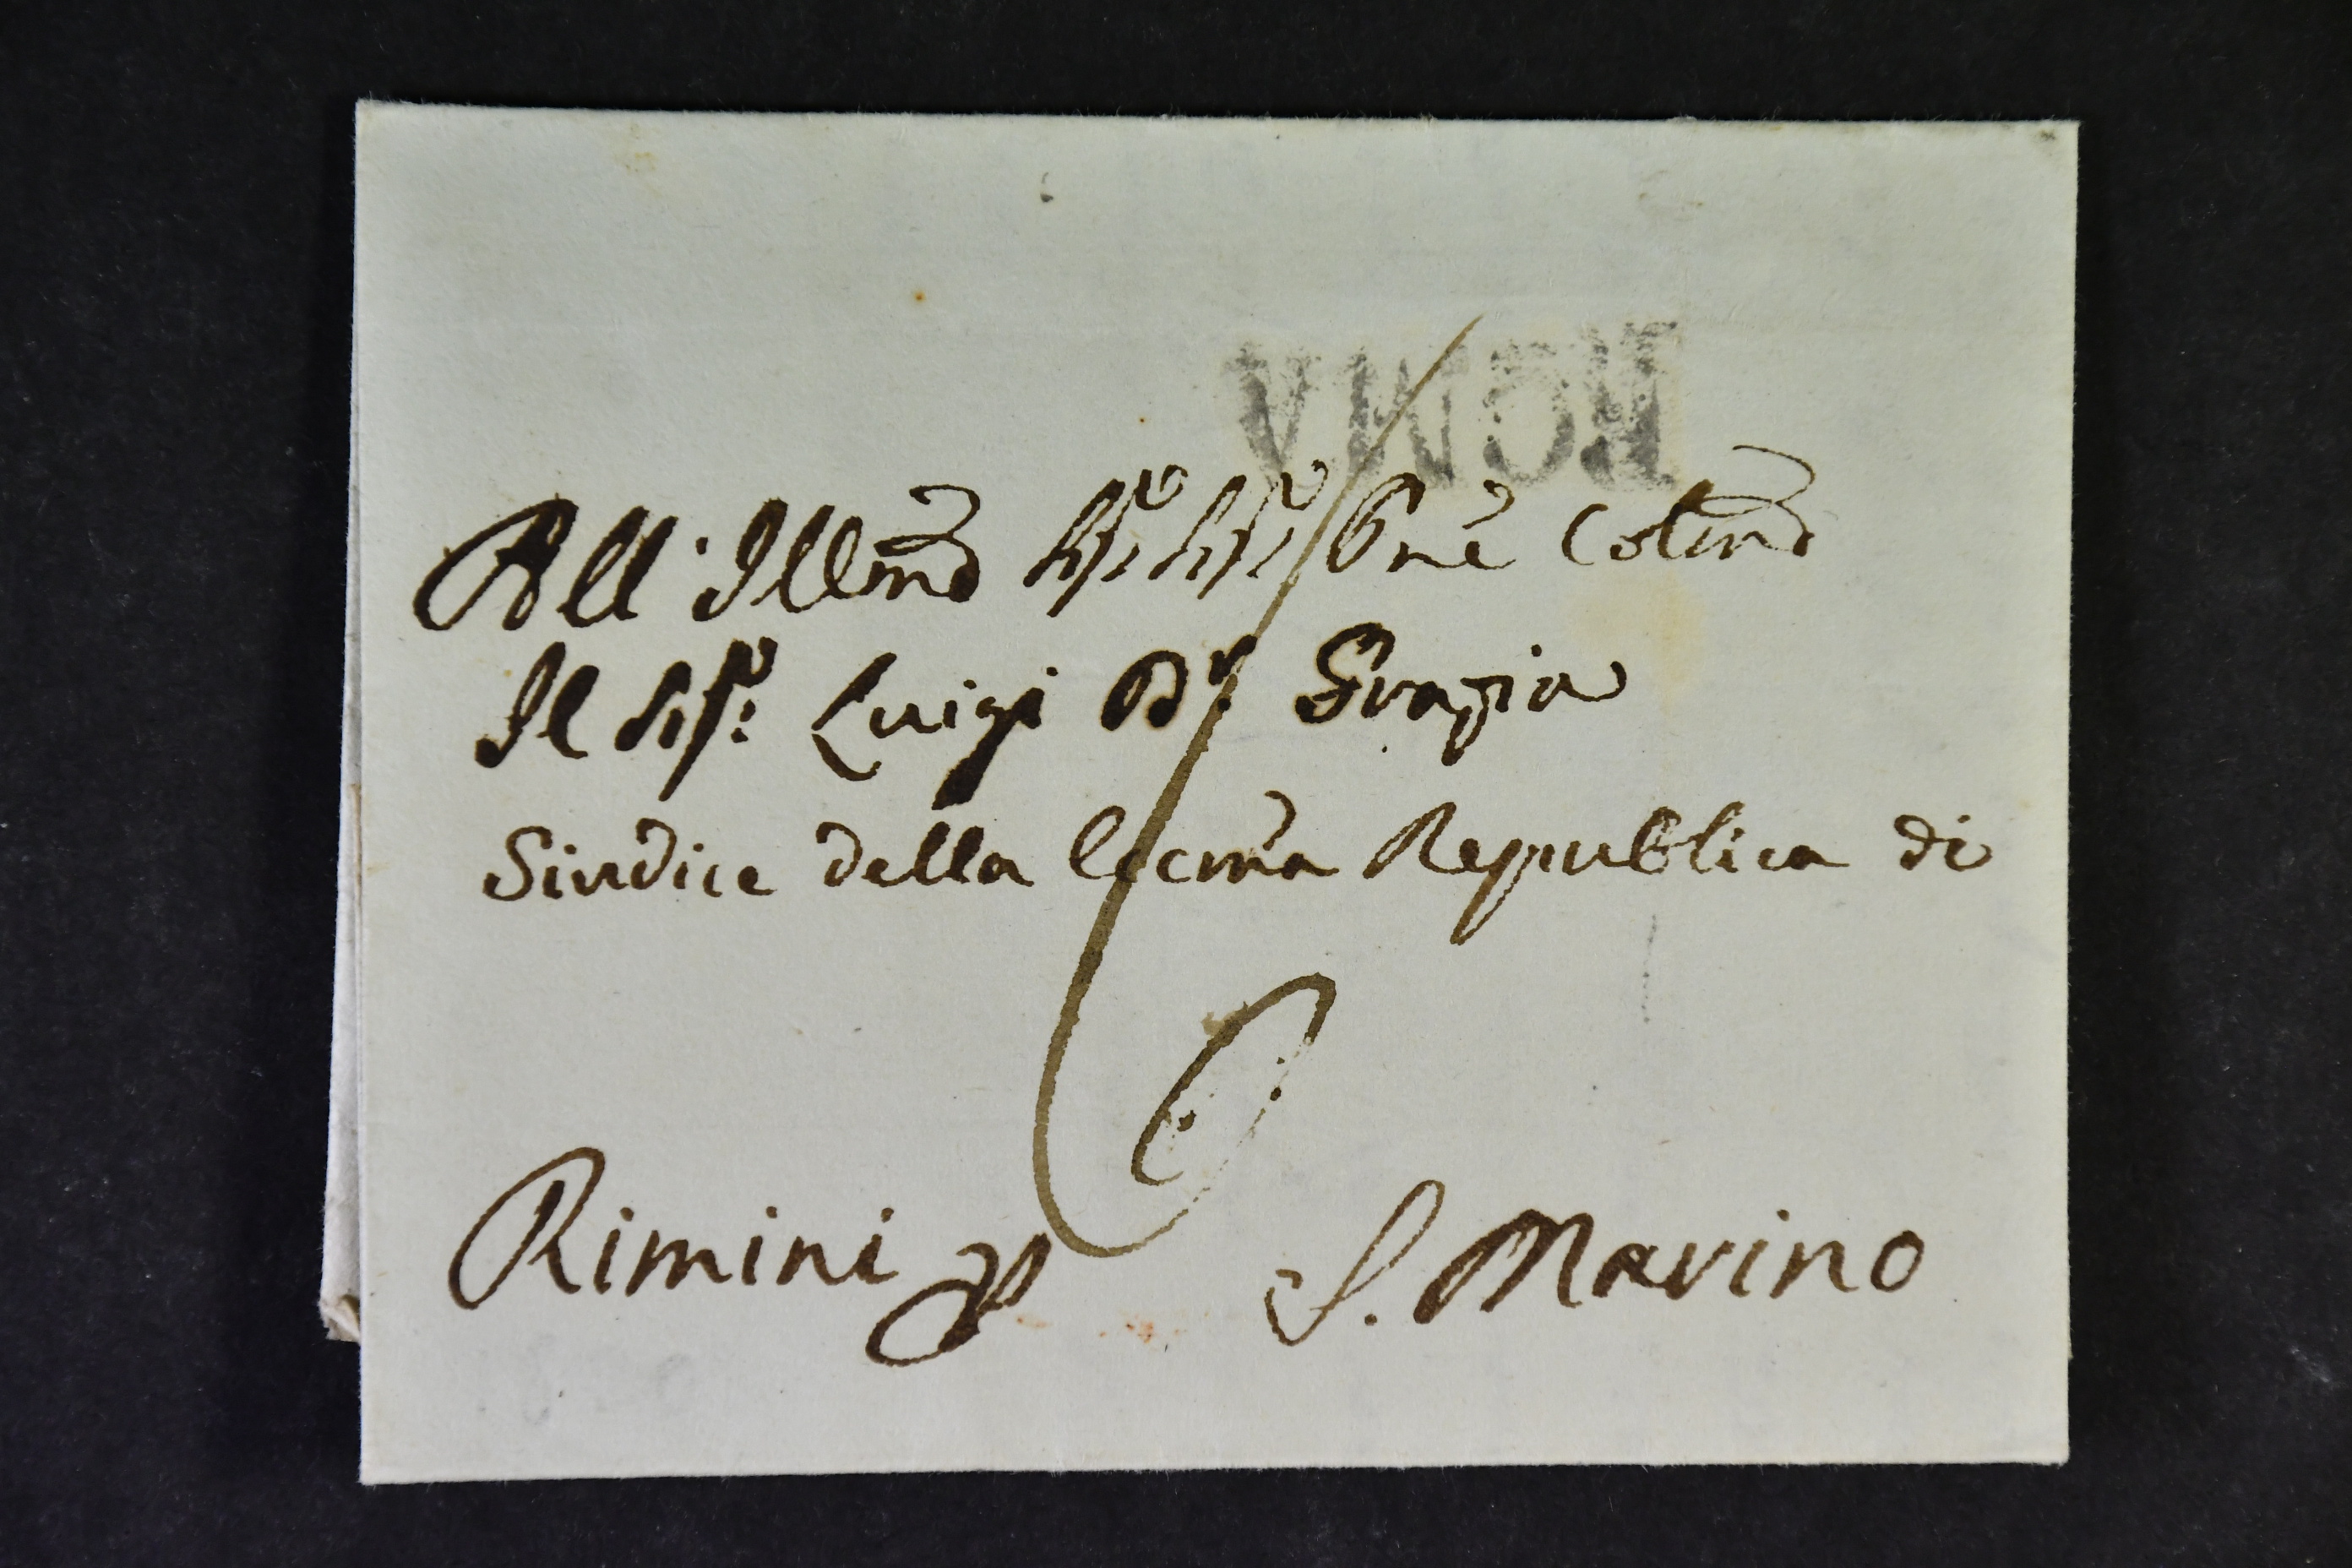 ROMA
All' Illmo Sigr Sigr Pne Colmo
Il Sigr: Luigi Dr Grazia
Sindice della Eccma Republica di
Rimini p S. Marino